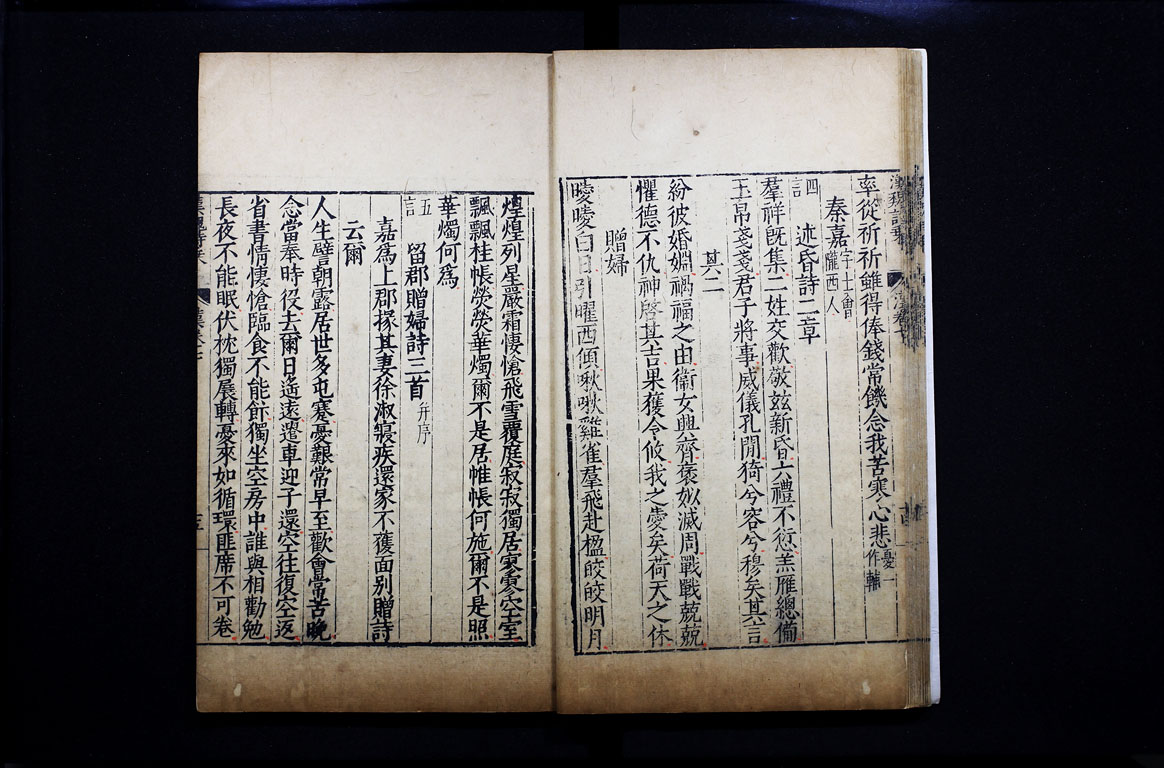 率從祈祈雖得俸錢常饑念我苦寒心悲憂一作輔
秦嘉字士會隴西人
四言 述昏詩二章
羣祥旣集二姓交歡敬兹新昏六禮不愆羔雁總備
玉帛戔戔君子將事威儀孔閒猗兮容兮穆矣其言
其二
紛彼婚姻禍福之由衞女興齊褒姒滅周戰戰兢兢
懼德不仇神啓其吉果獲令攸我之愛矣荷天之休
贈婦
曖曖白日引曜西傾啾啾雞雀羣飛赴楹皎皎明月
煌煌列星嚴霜悽愴飛雪覆庭寂寂獨居寥寥空室
飄飄桂帳熒熒華燭爾不是居帷帳何施爾不是照
華燭何爲
五言 留郡贈婦詩三首并序
嘉爲上郡掾其妻徐淑寢疾還家不獲面別贈詩
云爾
人生譬朝露居世多屯蹇憂艱常早至歡會常苦晚
念當奉時役去爾日遙遠遣車迎子還空往復空返
省書情悽愴臨食不能飰獨坐空房中誰與相勸勉
長夜不能眠伏枕獨展轉憂來如循環匪席不可卷